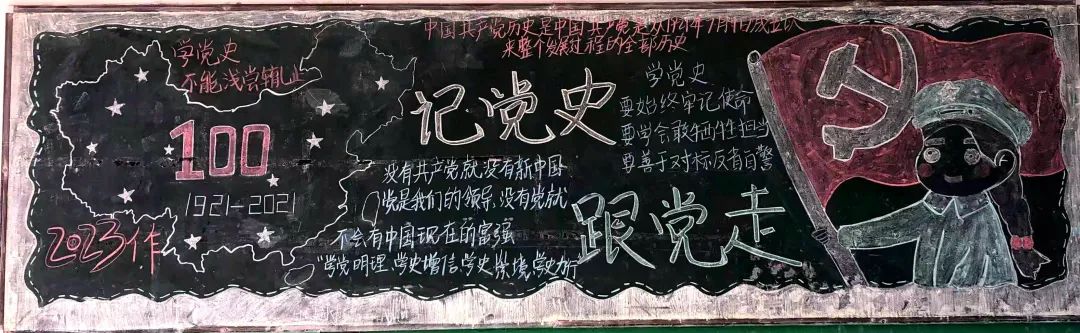 中国共产党历史是中国共产党是从1921年7月1日成立以
来整个发展过程的全部历史
学党史
不能浅尝辄止
100
1921-2021
2023作
记党史
跟党走
没有共产党就没有新中国
党是我们的领导,没有党就
不会有中国现在的富强
"学党明理、学史增信、学史崇 学史力行"
学党史
要始终牢记使命
要学会敢牺牲担当
要善于对标反省自警